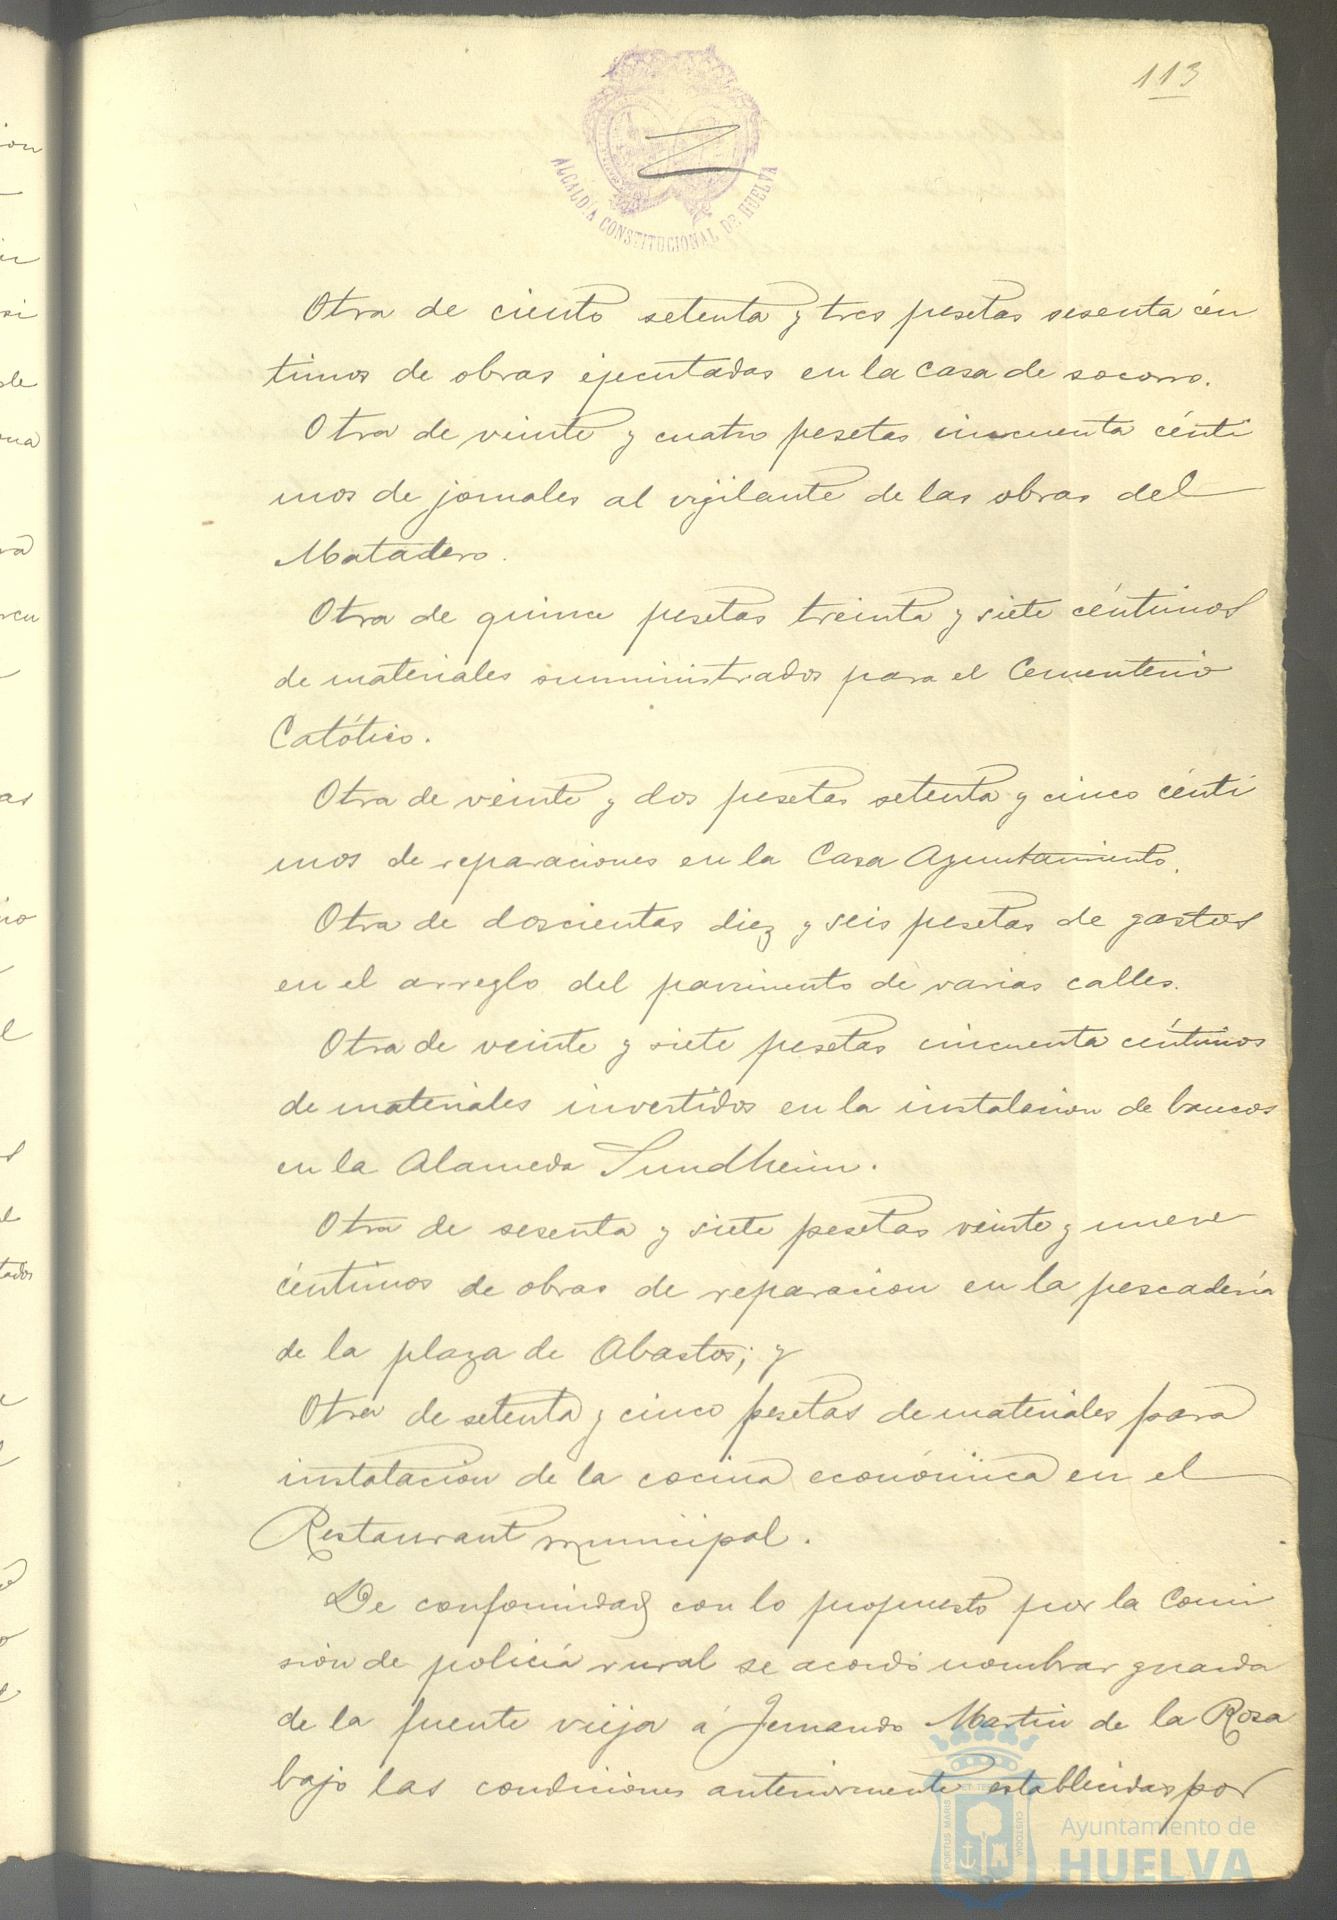 113
ALCALDÍA CONSTITUCIONAL DE HUELVA
Otra de ciento setenta y tres pesetas sesenta cén
timos de obras ejecutadas en la Casa de socorro.
Otra de veinte y cuatro pesetas cincuenta cénti
mos de jornales al vigilante de las obras del
Matadero.
Otra de quince pesetas treinta y siete céntimos
de materiales suministrados para el Cementerio
Católico.
Otra de veinte y dos pesetas setenta y cinco cénti
mos de reparaciones en la Casa Ayuntamiento.
Otra de doscientas diez y seis pesetas de gastos
en el arreglo del pavimento de varias calles.
Otra de veinte y siete pesetas cincuenta céntimos
de materiales invertidos en la instalacion de bancos
en la Alameda Sundheim.
Otra de sesenta y siete pesetas veinte y nueve
céntimos de obras de reparacion en la pescadería
de la plaza de Abastos; y
Otra de setenta y cinco pesetas de materiales para
instalacion de la cocina económica en el
Restaurant municipal.
De conformidad con lo propuesto por la Comi
sion de policía rural se acordó nombrar guarda
de la fuente vieja á Fernando Martin de la Rosa
bajo las condiciones anteriormente establecidas por
PORTUS MARIS ET TERRÆ CUSTODIA
Ayuntamiento de
HUELVA